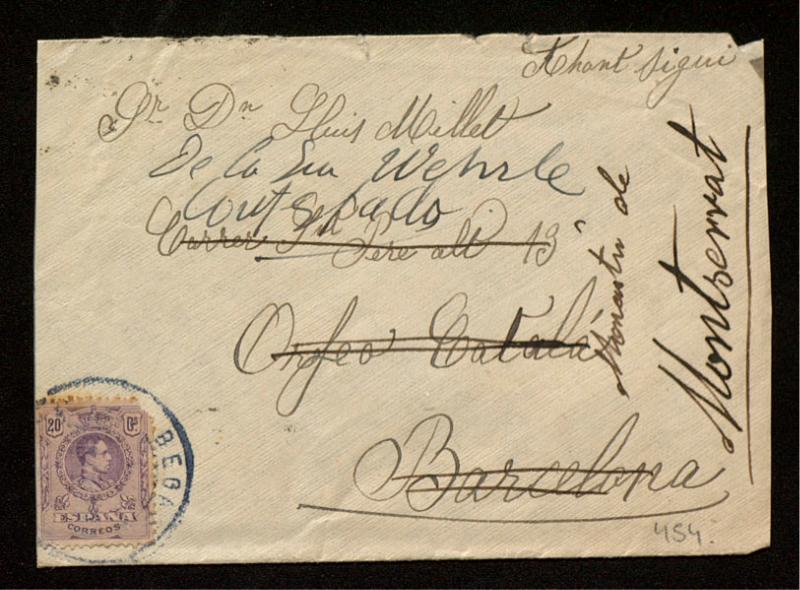 Ahont sigui
Sr. Dn. Lluis Millet
De la Wehrle
Contestado
Carrer St. Pere alt 13
Orfeo Català
Barcelona
Monastir de
Montserrat
20 Cs
BEGA
ESPAÑA
CORREOS
454.